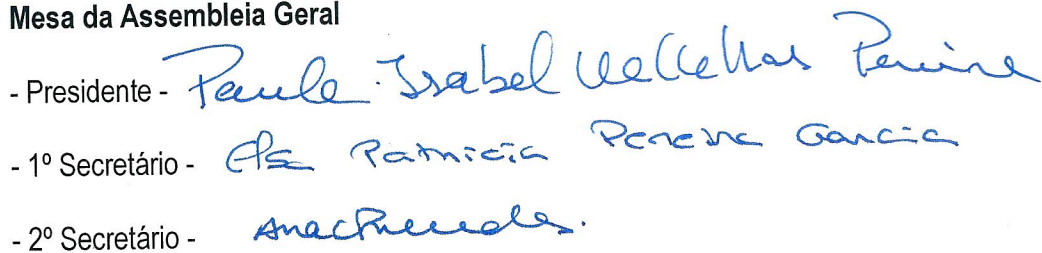 Mesa da Assembleia Geral
- Presidente - Paula Isabel Pereira
- 1º Secretário - Elsa Patrícia Pereira Garcia
- 2º Secretário -